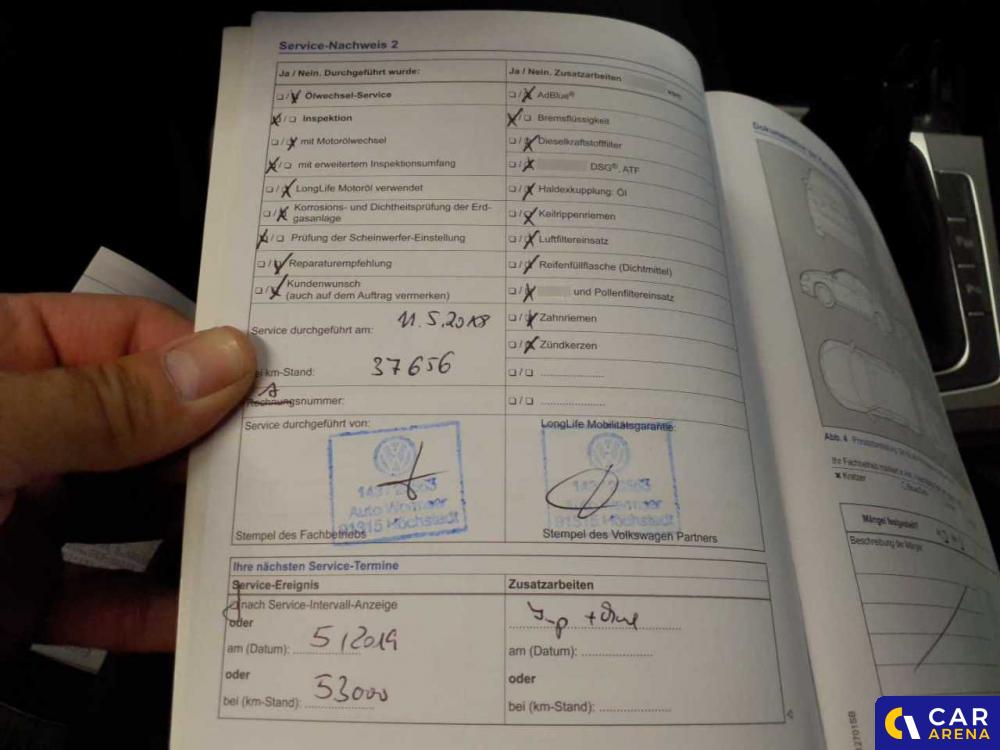 Service-Nachweis 2
Ja / Nein. Durchgeführt wurde:
❏ / ❏ Ölwechsel-Service
❏ / ❏ Inspektion
❏ / ❏ mit Motorölwechsel
❏ / ❏ mit erweitertem Inspektionsumfang
❏ / ❏ LongLife Motoröl verwendet
❏ / ❏ Korrosions- und Dichtheitsprüfung der Erd-
gasanlage
❏ / ❏ Prüfung der Scheinwerfer-Einstellung
❏ / ❏ Reparaturempfehlung
❏ / ❏ Kundenwunsch
(auch auf dem Auftrag vermerken)
Service durchgeführt am: 11.5.2018
km-Stand: 37656
Rechnungsnummer:
Service durchgeführt von:
Auto
91315 Höchstadt
Stempel des Fachbetriebs
Ja / Nein. Zusatzarbeiten
❏ / ❏ AdBlue®
❏ / ❏ Bremsflüssigkeit
❏ / ❏ Dieselkraftstofffilter
❏ / ❏ DSG®, ATF
❏ / ❏ Haldexkupplung: Öl
❏ / ❏ Keilrippenriemen
❏ / ❏ Luftfiltereinsatz
❏ / ❏ Reifenfüllflasche (Dichtmittel)
❏ / ❏ und Pollenfiltereinsatz
❏ / ❏ Zahnriemen
❏ / ❏ Zündkerzen
❏ / ❏ ....................
❏ / ❏ ....................
LongLife Mobilitätsgarantie:
91315 Höchstadt
Stempel des Volkswagen Partners
Ihre nächsten Service-Termine
Service-Ereignis
❏ nach Service-Intervall-Anzeige
oder
am (Datum): 5/2019
oder
bei (km-Stand): 53000
Zusatzarbeiten
am (Datum): ....................
oder
bei (km-Stand): ....................
Abb. 4
Ihr Fachbetrieb markiert
x Kratzer
Mängel festgestellt?
Beschreibung der Mängel
CAR
ARENA